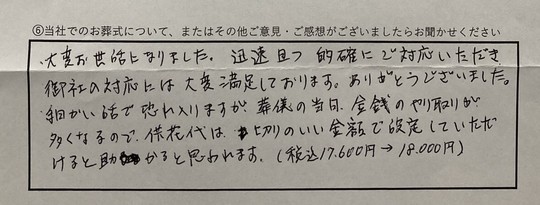 ⑥当社でのお葬式について、またはその他ご意見・ご感想がございましたらお聞かせください
・大変お世話になりました。迅速且つ的確にご対応いただき
御社の対応には大変満足しております。ありがとうございました。
・細かい話で恐れ入りますが、葬儀の当日、金銭のやり取りが
多くなるので、供花代は切りのいい金額で設定していただ
けると助かると思われます。(税込17.600円→18.000円)